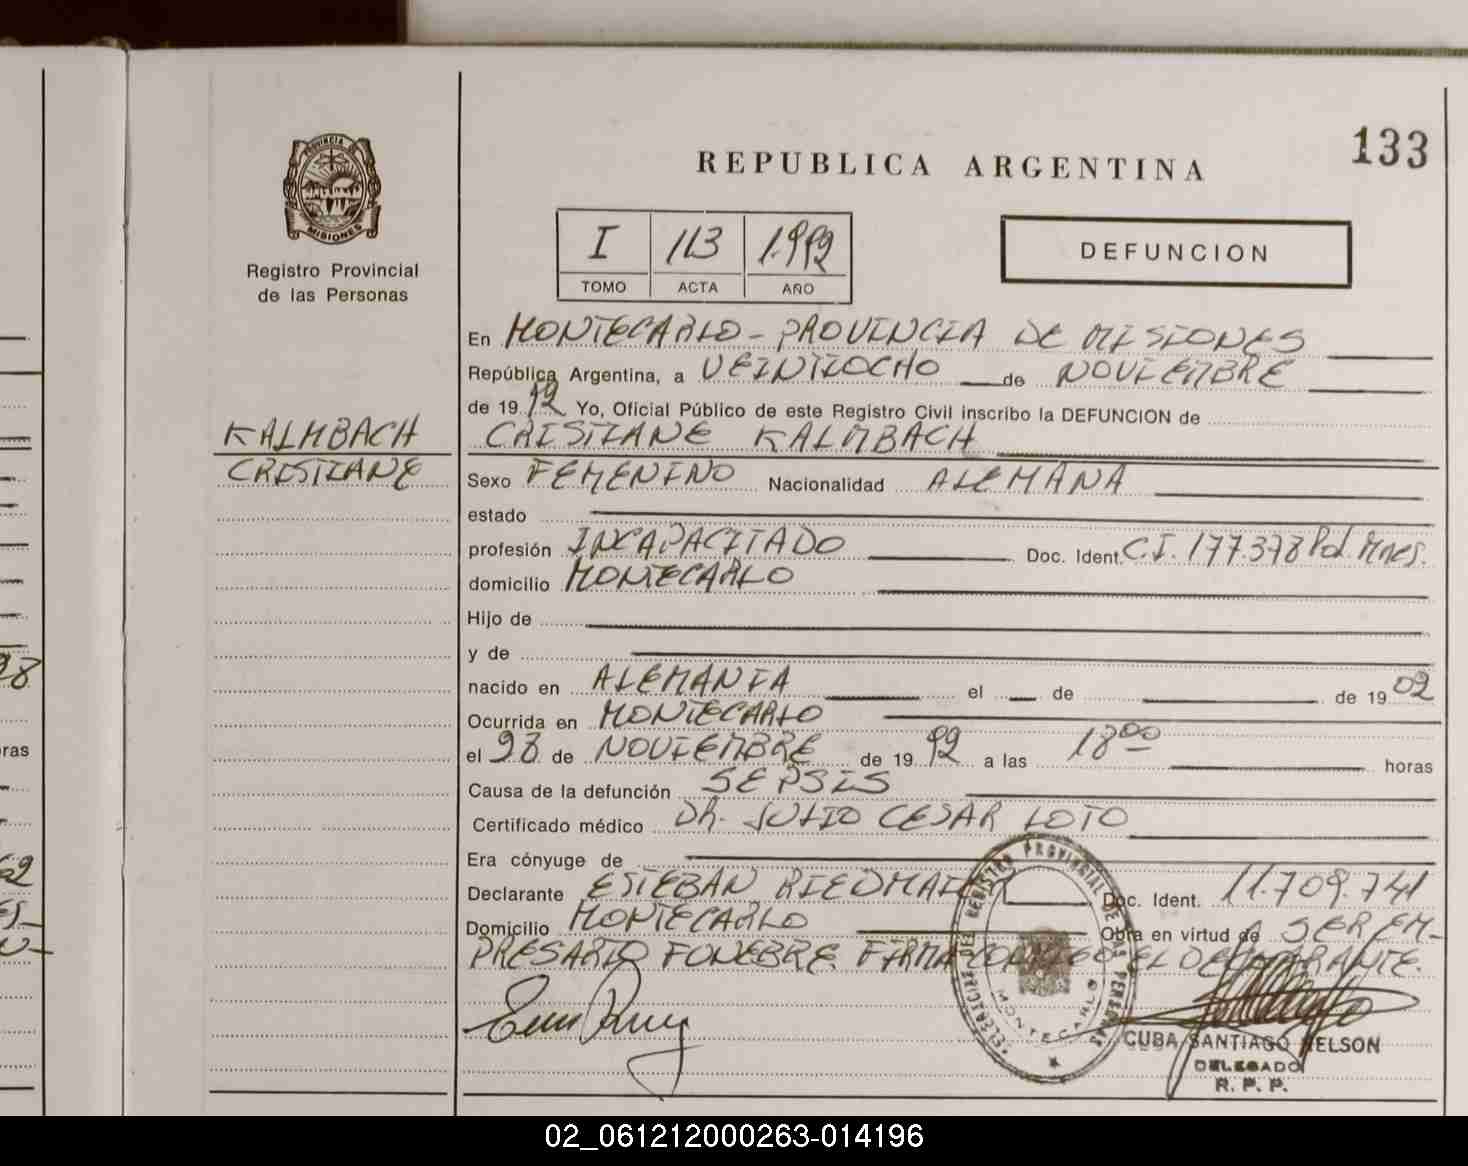 133
REPUBLICA ARGENTINA
PROVINCIA DE
MISIONES
Registro Provincial
de las Personas
I 113 1.992
TOMO ACTA AÑO
DEFUNCION
En MONTECARLO - PROVINCIA DE MISIONES
República Argentina, a VEINTIOCHO de NOVIEMBRE
de 19 92 Yo, Oficial Público de este Registro Civil inscribo la DEFUNCION de
KALMBACH
CRISTIANE
CRISTIANE KALMBACH
Sexo FEMENINO Nacionalidad ALEMANA
estado
profesión INCAPACITADO Doc. Ident. C.I. 177.378 Pol. Mnes.
domicilio MONTECARLO
Hijo de
y de
nacido en ALEMANIA el de de 19 02
Ocurrida en MONTECARLO
el 28 de NOVIEMBRE de 19 92 a las 18 00 horas
Causa de la defunción SEPSIS
Certificado médico Dr. JULIO CESAR LOTO
Era cónyuge de
Declarante ESTEBAN RIEDMAIER Doc. Ident. 11.709.741
Domicilio MONTECARLO Obra en virtud de SER EM-
PRESARIO FONEBRE. FIRMA CONMIGO EL DECLARANTE.
DELEGACION DEL REGISTRO PROVINCIAL DE LAS PERSONAS
MONTECARLO
CUBA SANTIAGO NELSON
DELEGADO
R. P. P.
28
ras
62
02_061212000263-014196